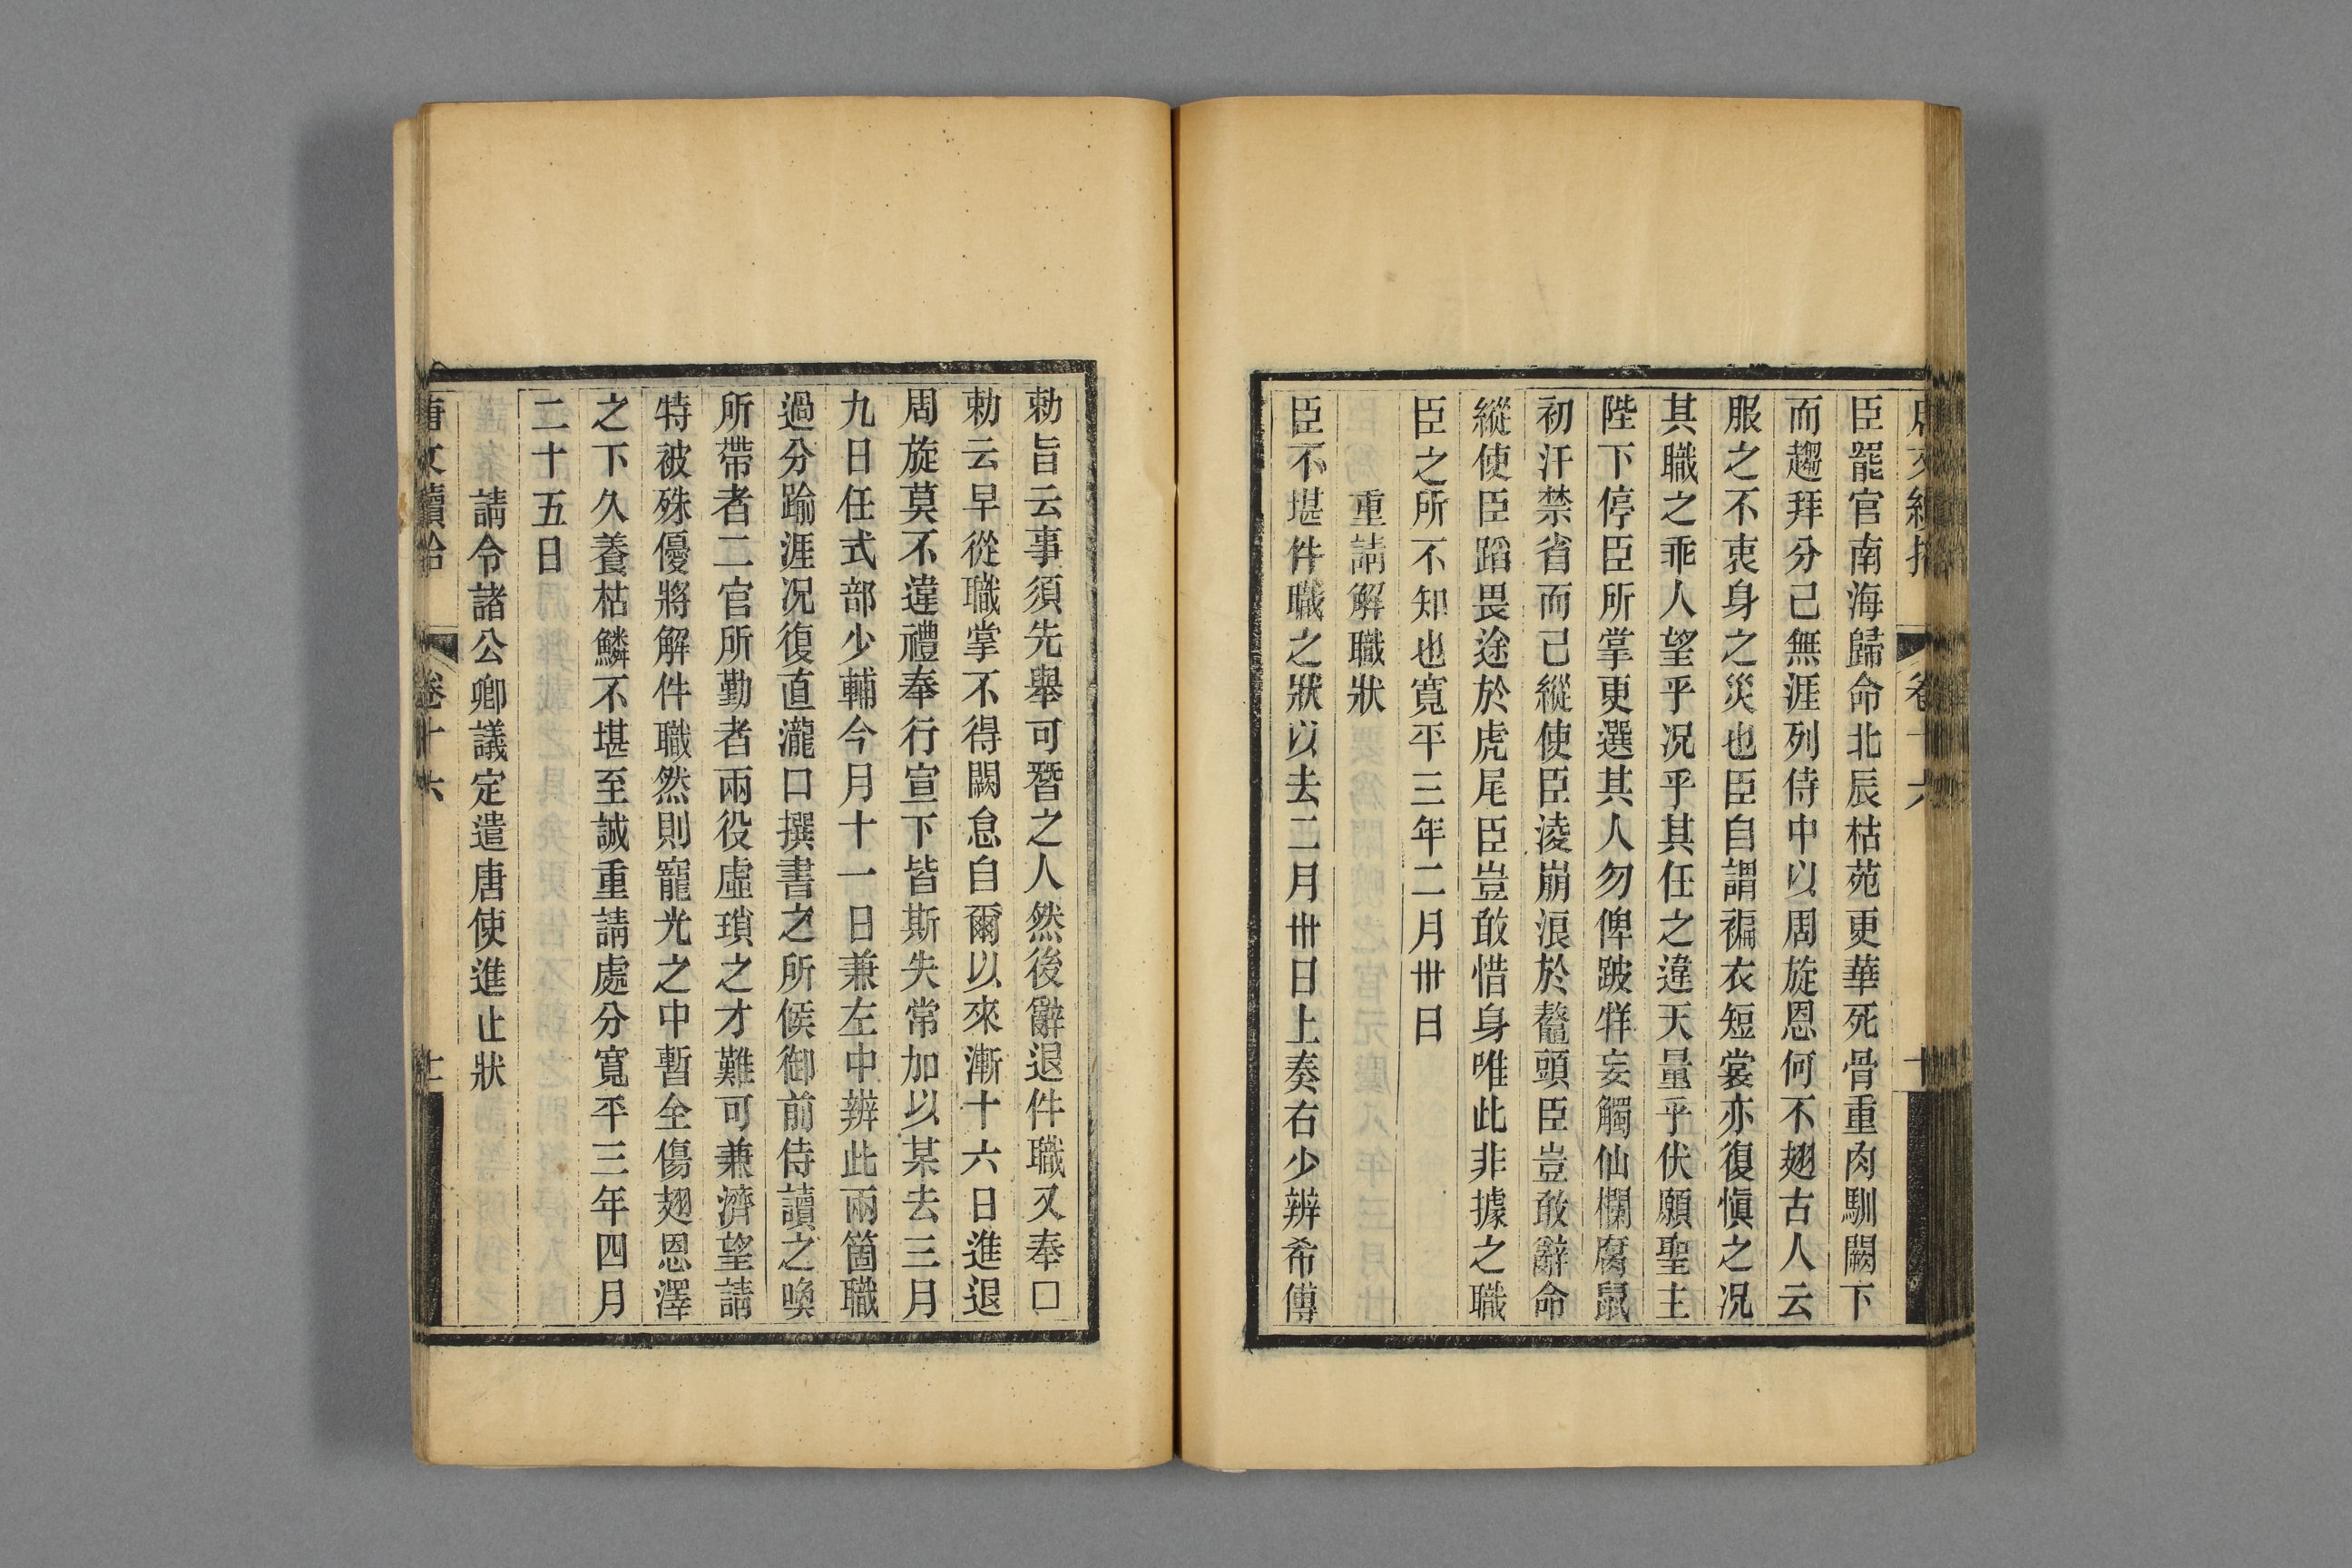 臣罷官南海歸命北辰枯苑更華死骨重肉馴闕下
而趨拜分己無涯列侍中以周旋恩何不翅古人云
服之不衷身之災也臣自謂褊衣短裳亦復愼之況
其職之乖人望乎況乎其任之違天量乎伏願聖主
陛下停臣所掌更選其人勿俾跛牂妄觸仙欄腐鼠
初汗禁省而已縱使臣淩崩浪於鼇頭臣豈敢辭命
縱使臣蹈畏途於虎尾臣豈敢惜身唯此非據之職
臣之所不知也寬平三年二月卅日
重請解職狀
臣不堪件職之狀以去二月卅日上奏右少辨希傳
勅旨云事須先舉可暦之人然後辭退件職又奉□
勅云早從職掌不得闕怠自爾以來漸十六日進退
周旋莫不違禮奉行宣下皆斯失常加以某去三月
九日任式部少輔今月十一日兼左中辨此兩箇職
過分踰涯況復直瀧口撰書之所候御前侍讀之喚
所帶者二官所勤者兩役虛瑣之才難可兼濟望請
特被殊優將解件職然則寵光之中暫全傷翅恩澤
之下久養枯鱗不堪至誠重請處分寬平三年四月
二十五日
請令諸公卿議定遣唐使進止狀
唐文續拾 卷十六 十一